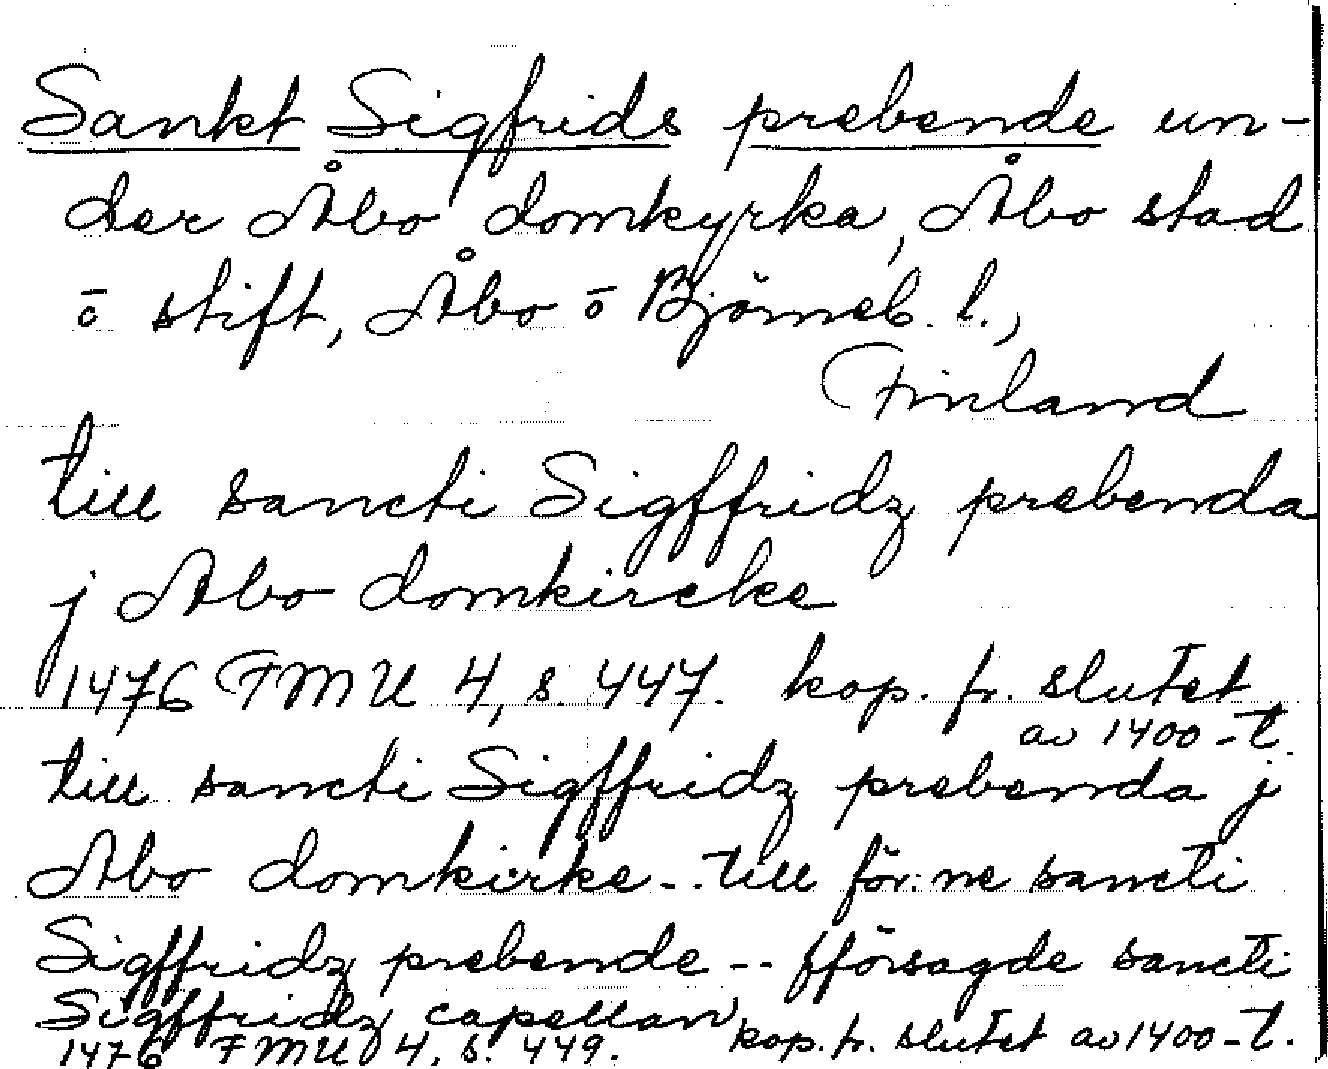 Sankt Sigfrids prebende un-
der Åbo domkyrka, Åbo stad
ō stift, Åbo ō Björneb. l.,
Finland
till sancti Sigffridz prebenda
j Abo domkircke
1476 FMU 4, s. 447. kop. fr. slutet
av 1400-t.
till sancti Sigffridz prebenda j
Abo domkirke -- till för:ne sancti
Sigffridz prebende -- fförsagde sancti
Sigffridz capellan
1476 FMU 4, s. 449. kop. fr. slutet av 1400-t.